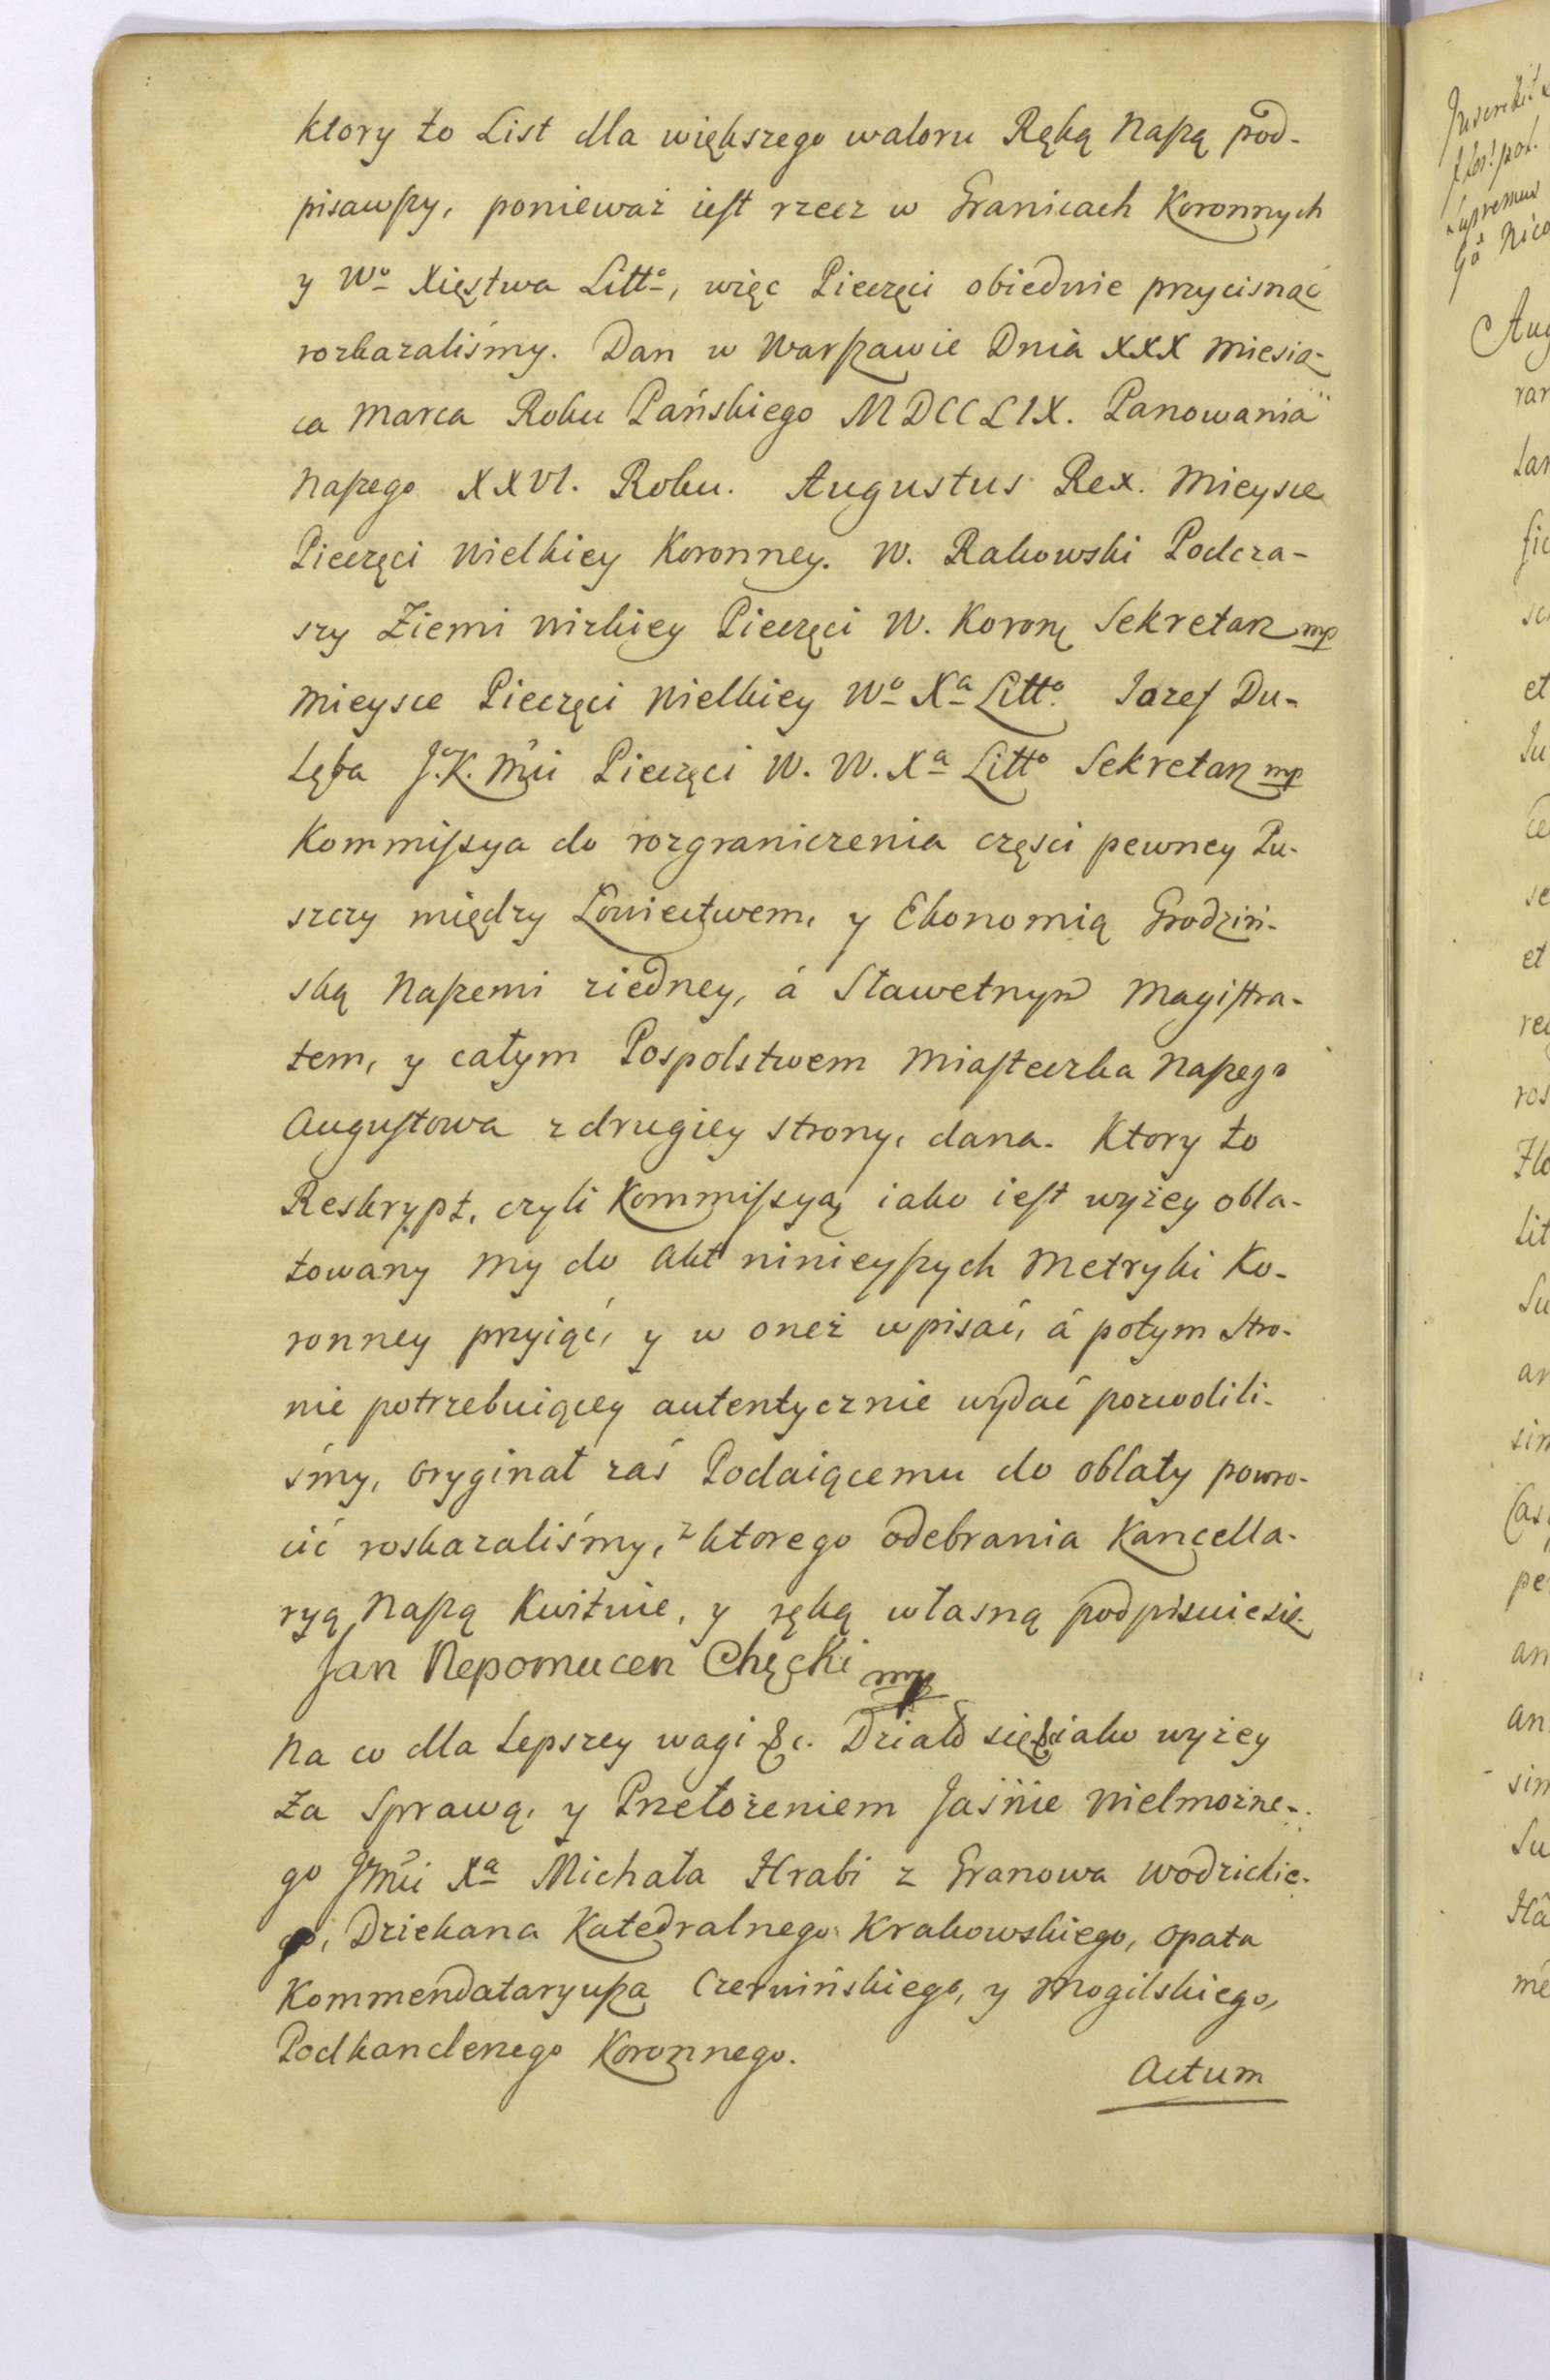 ktory to List dla większego waloru Ręką Naszą pod-
pisawszy, ponieważ iest rzecz w Granicach Koronnych
y Wº Xięstwa Littº, więc Pieczęci obiedwie przycisnąć
rozkazaliśmy. Dan w Warszawie Dnia XXX Miesią-
ca Marca Roku Pańskiego MDCCLIX. Panowania
Naszego XXVI. Roku. Augustus Rex. Mieysce
Pieczęci Wielkiey Koronney. W. Rakowski Podcza-
szy Ziemi Wizkiey Pieczęci W. Koronę Sekretarz mp
Mieysce Pieczęci Wielkiey Wº Xª Littº Jozef Du-
lęba J.K.Mći Pieczęci W. W. Xª Littº Sekretarz mp
Kommissya do rozgraniczenia części pewney Pu-
szczy między Łowiectwem, y Ekonomią Grodziń-
ską Naszemi ziedney, á Sławetnym Magistra-
tem, y całym Pospolstwem Miasteczka Naszego
Augustowa z drugiey strony, dana. Ktory to
Reskrypt, czyli Kommissyą iako iest wyżey obla-
towany My do Akt ninieyszych Metryki Ko-
ronney przyiąć, y w oneż wpisać, á potym Stro-
nie potrzebuiącey autentycznie wydać pozwolili-
śmy, oryginał zaś Podaiącemu do oblaty powro-
cić roskazaliśmy, z ktorego odebrania Kancella-
ryą Naszą Kwituie, y ręką własną podpisuie się
Jan Nepomucen Chęcki mp
Na co dla lepszey wagi &c. Działo się &c iako wyżey
Za Sprawą, y Przełożeniem Jaśnie Wielmożne-
go Jmći Xª Michała Hrabi z Granowa Wodzickie-
go, Dziekana Katedralnego Krakowskiego, Opata
Kommendataryusza Czerwińskiego, y Mogilskiego,
Podkanclerzego Koronnego.
Actum